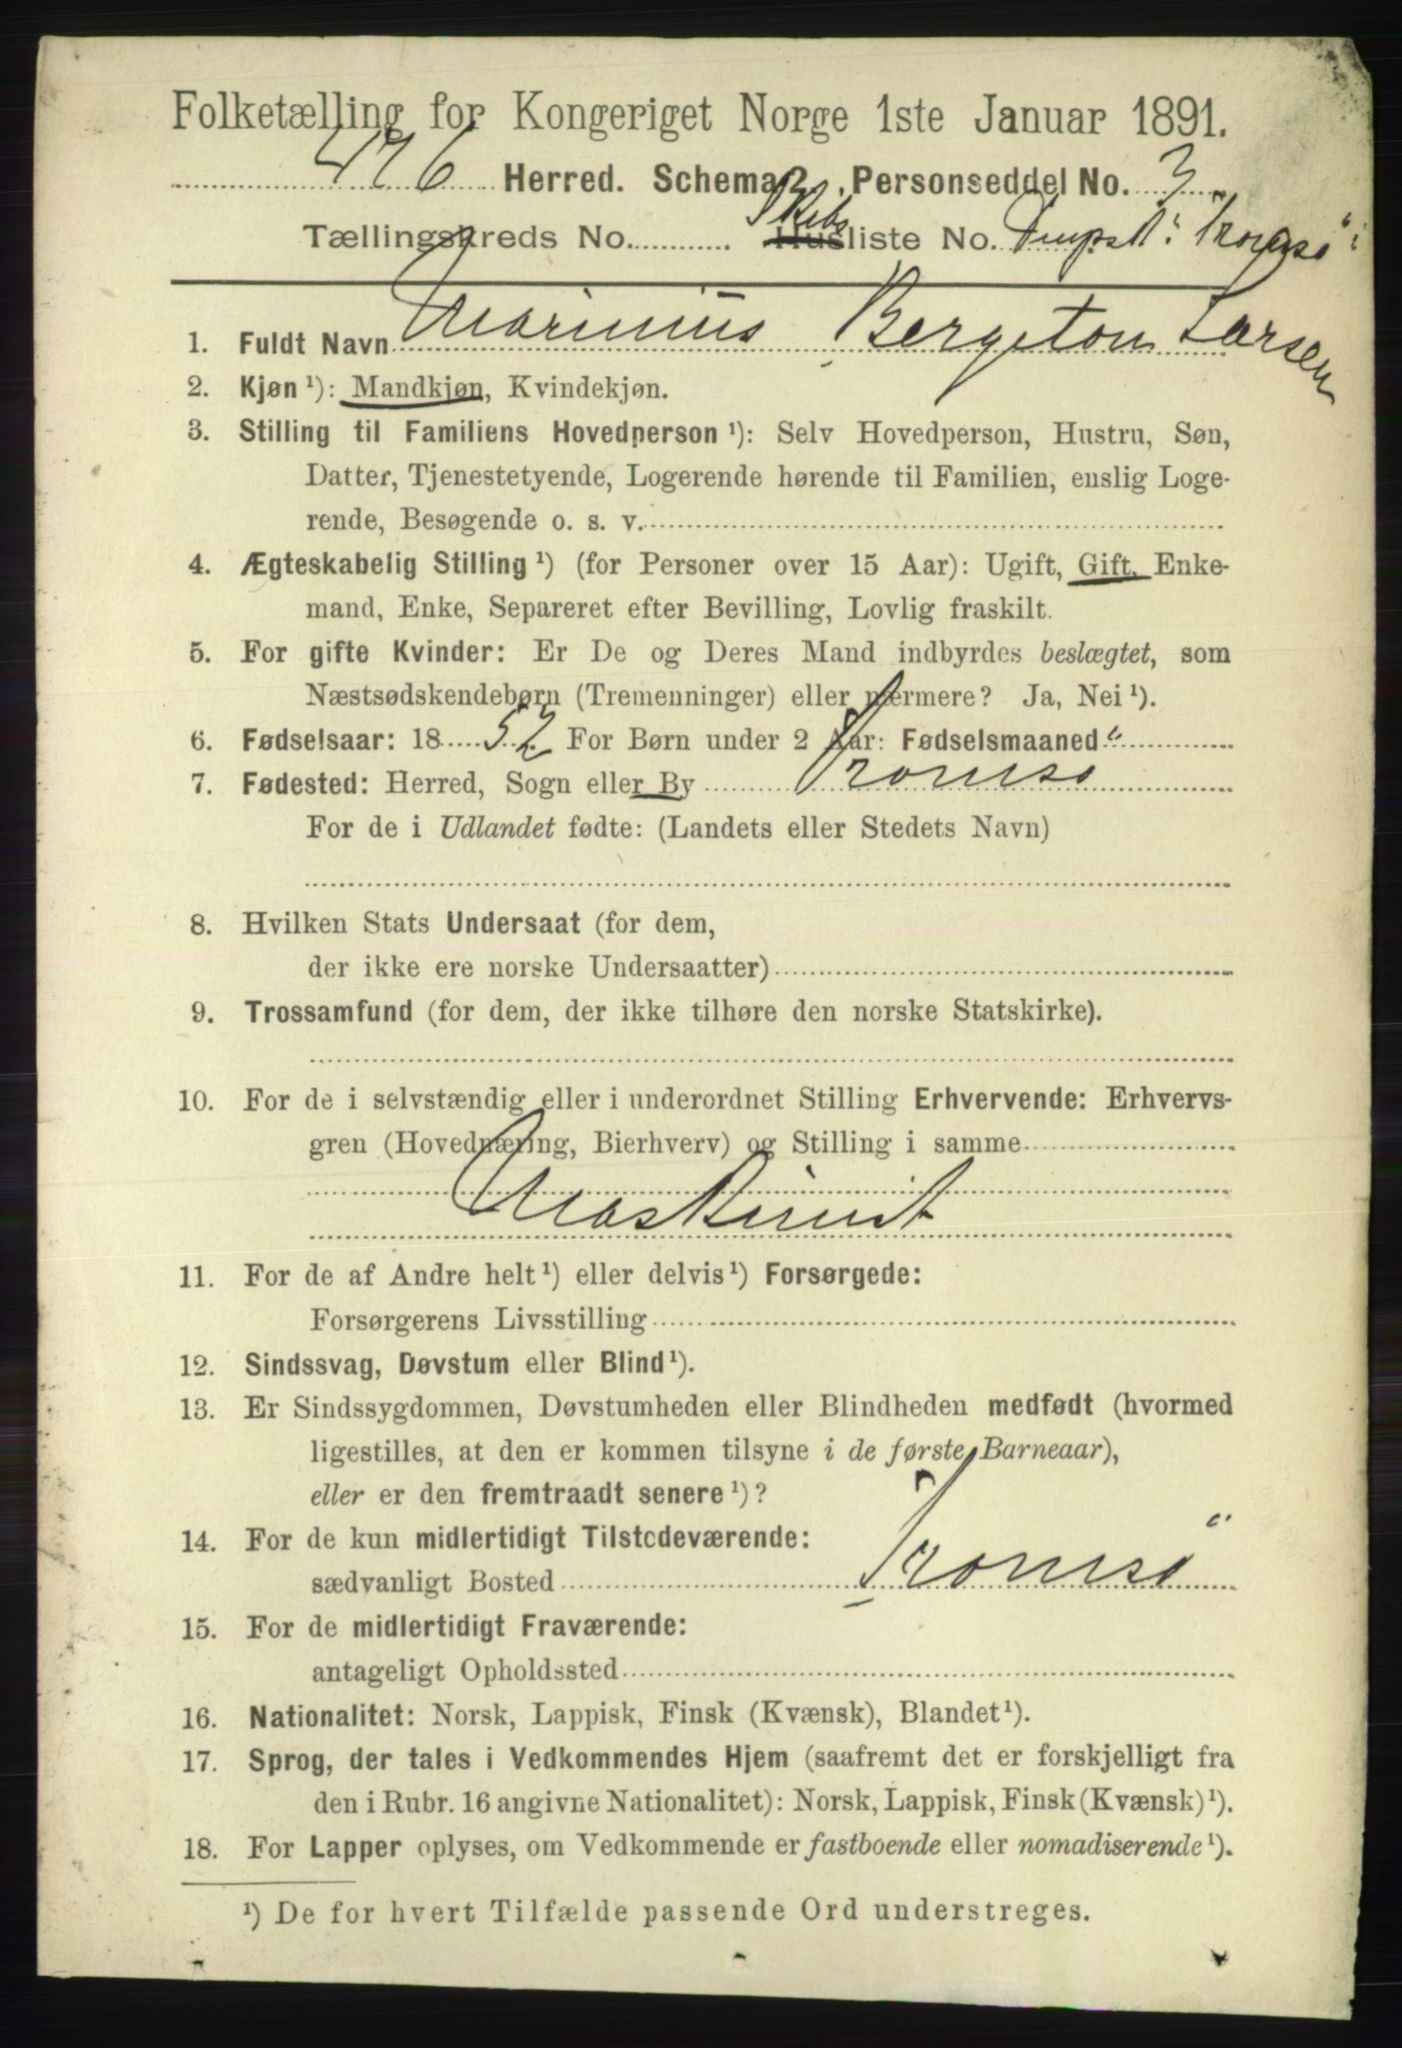 Folketælling for Kongeriget Norge 1ste Januar 1891.
Herred. Schema 2. Personseddel No. 3
Tællingskreds No. Skibs Husliste No. Dmpsk. "Tromsø"
1. Fuldt Navn Marinius Bergeton Larsen
2. Kjøn ¹): Mandkjøn, Kvindekjøn.
3. Stilling til Familiens Hovedperson ¹): Selv Hovedperson, Hustru, Søn,
Datter, Tjenestetyende, Logerende hørende til Familien, enslig Loge-
rende, Besøgende o. s. v.
4. Ægteskabelig Stilling ¹) (for Personer over 15 Aar): Ugift, Gift, Enke-
mand, Enke, Separeret efter Bevilling, Lovlig fraskilt.
5. For gifte Kvinder: Er De og Deres Mand indbyrdes beslægtet, som
Næstsødskendebørn (Tremenninger) eller nærmere? Ja, Nei ¹).
6. Fødselsaar: 1852. For Børn under 2 Aar: Fødselsmaaned
7. Fødested: Herred, Sogn eller By Tromsø
For de i Udlandet fødte: (Landets eller Stedets Navn)
8. Hvilken Stats Undersaat (for dem,
der ikke ere norske Undersaatter)
9. Trossamfund (for dem, der ikke tilhøre den norske Statskirke).
10. For de i selvstændig eller i underordnet Stilling Erhvervende: Erhvervs-
gren (Hovednæring, Bierhverv) og Stilling i samme
Maskinist
11. For de af Andre helt ¹) eller delvis ¹) Forsørgede:
Forsørgerens Livsstilling
12. Sindssvag, Døvstum eller Blind ¹).
13. Er Sindssygdommen, Døvstumheden eller Blindheden medfødt (hvormed
ligestilles, at den er kommen tilsyne i de første Barneaar),
eller er den fremtraadt senere ¹)?
14. For de kun midlertidigt Tilstedeværende:
sædvanligt Bosted Tromsø
15. For de midlertidigt Fraværende:
antageligt Opholdssted
16. Nationalitet: Norsk, Lappisk, Finsk (Kvænsk), Blandet ¹).
17. Sprog, der tales i Vedkommendes Hjem (saafremt det er forskjelligt fra
den i Rubr. 16 angivne Nationalitet): Norsk, Lappisk, Finsk (Kvænsk) ¹).
18. For Lapper oplyses, om Vedkommende er fastboende eller nomadiserende ¹).
¹) De for hvert Tilfælde passende Ord understreges.